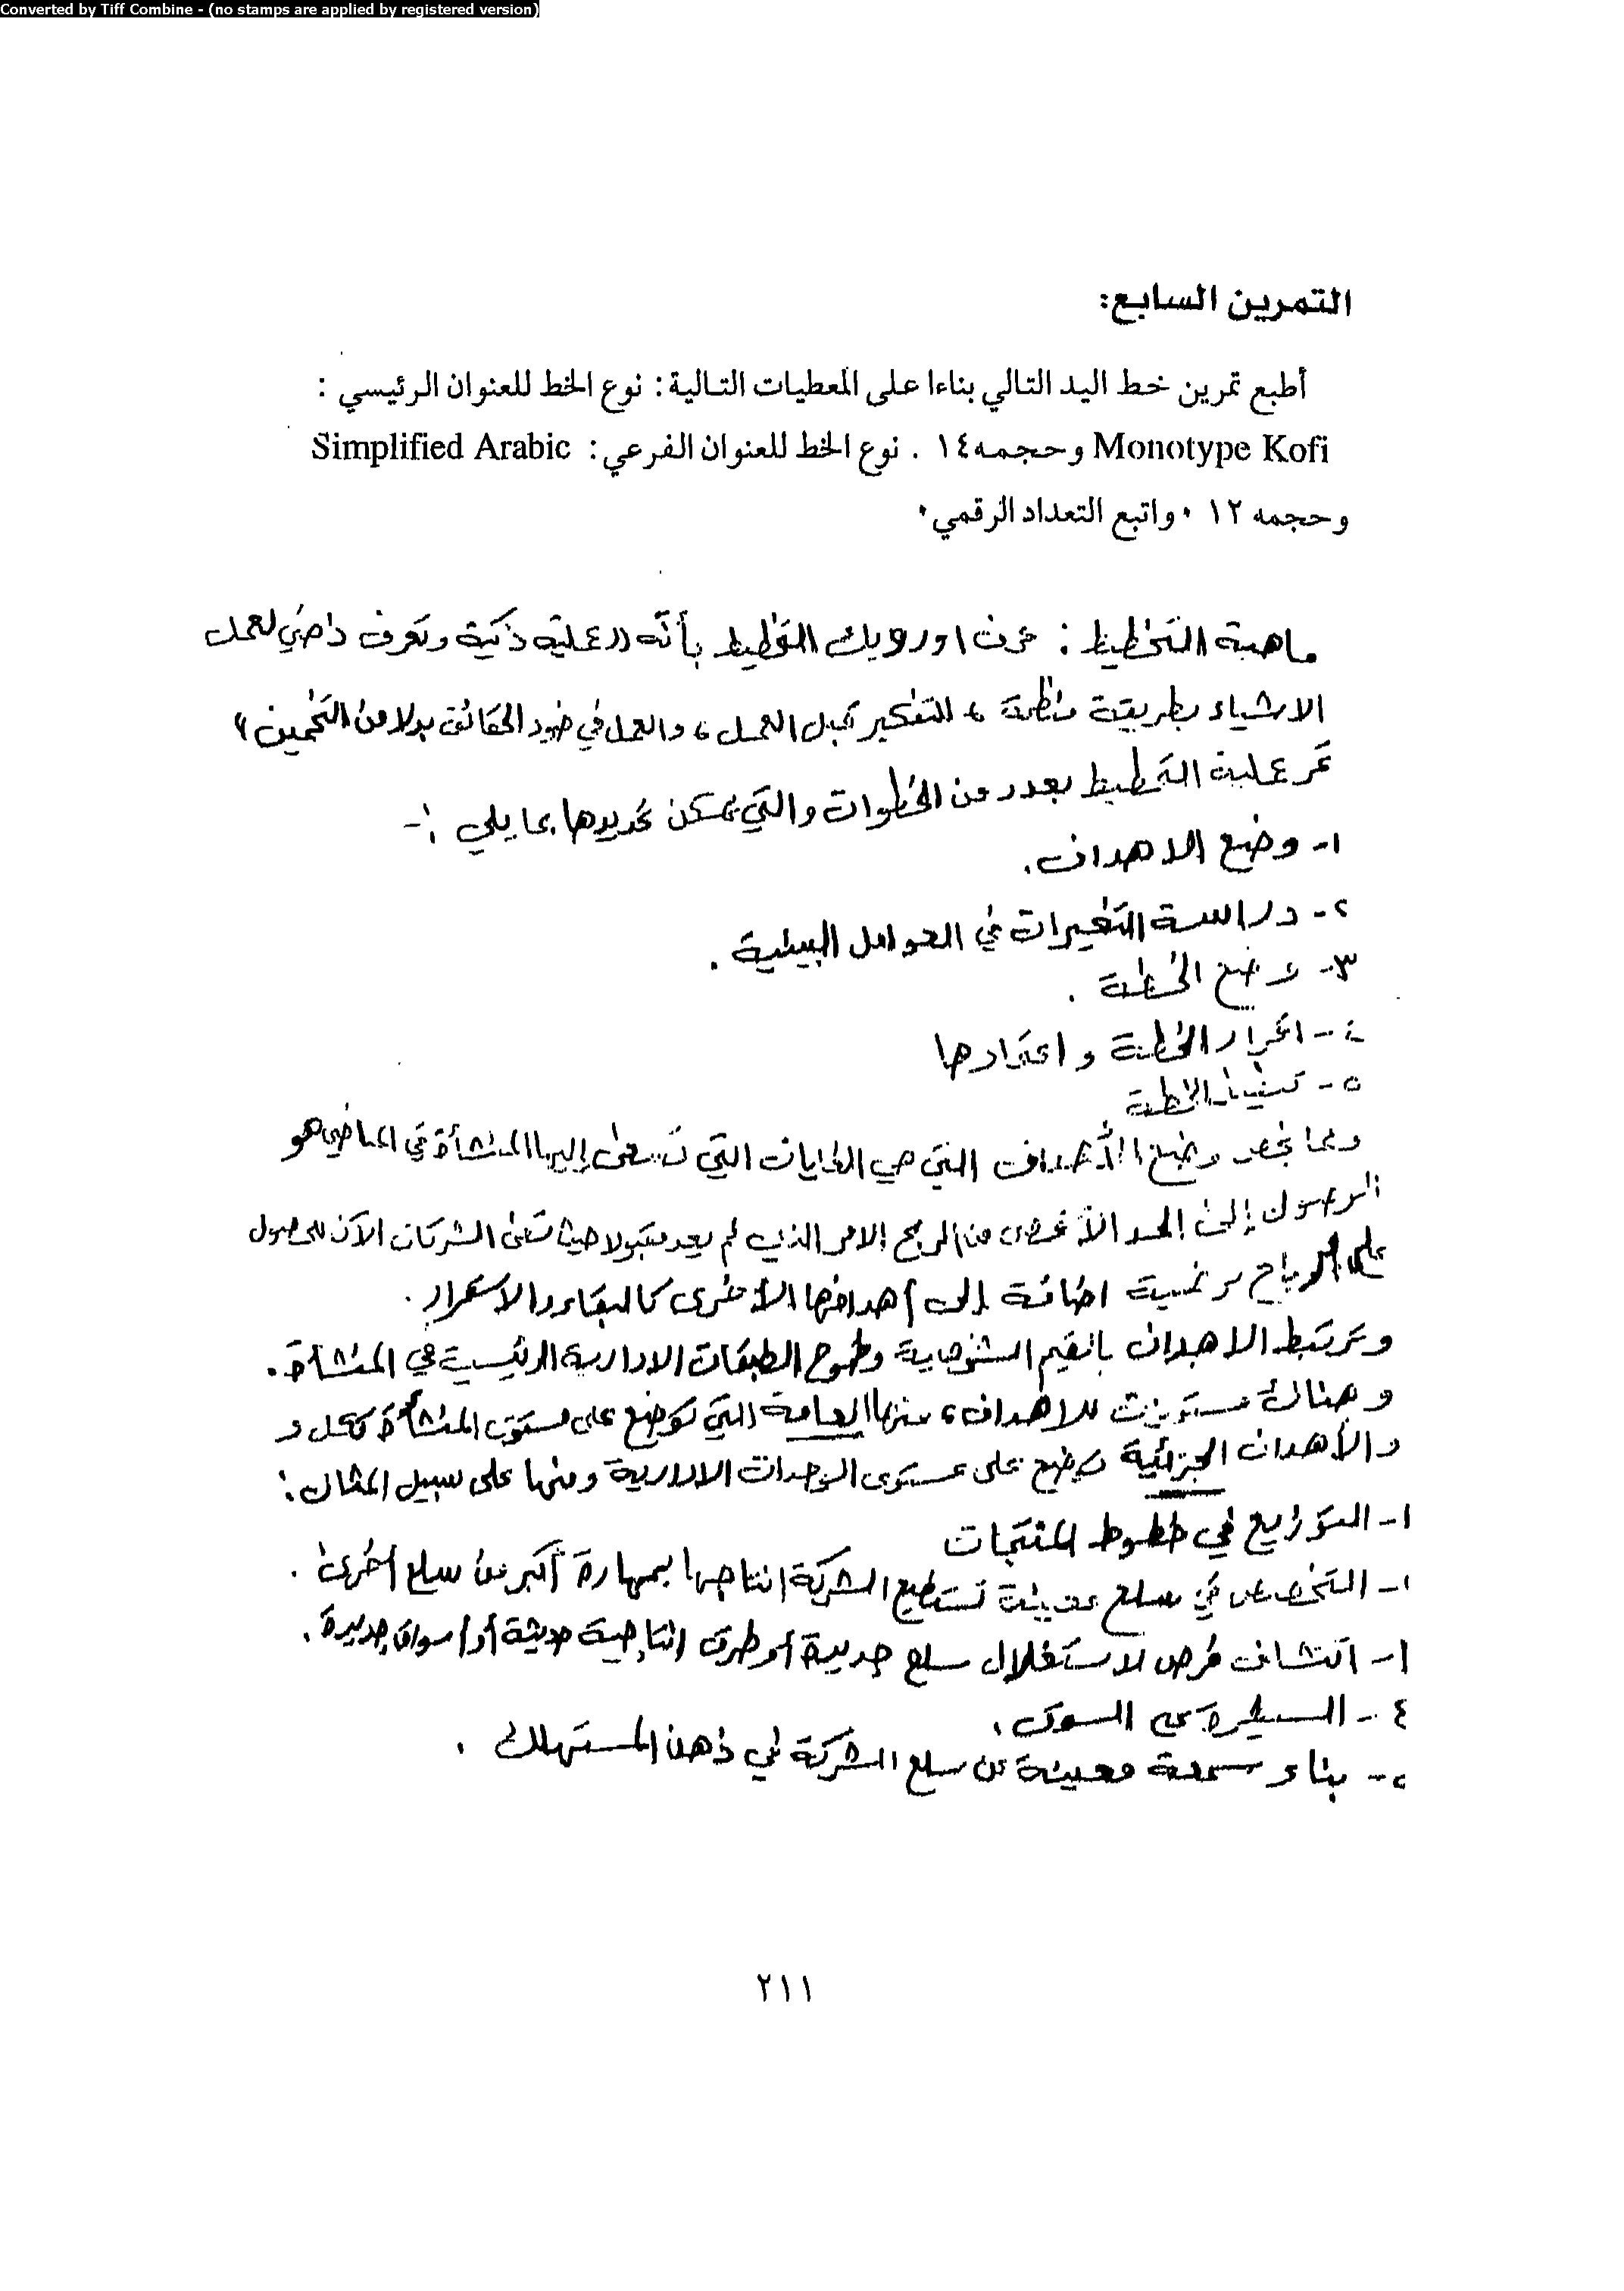 Converted by Tiff Combine - (no stamps are applied by registered version)
التمرين السابع:
أطبع تمرين خط اليد التالي بناءا على المعطيات التالية: نوع الخط للعنوان الرئيسي :
Monotype Kofi وحجمه ١٤ . نوع الخط للعنوان الفرعي: Simplified Arabic
وحجمه ١٢ ٠ واتبع التعداد الرقمي ٠
ماهية التخطيط : عرف اورويك التخطيط بأنّه ((عملية ذكية وتصرف ذهني لعمل
الاشياء بطريقة منظمة ، التفكير قبل العمل ، والعمل في ضوء الحقائق بدلا من التخمين ))
تمر عملية التخطيط بعدد من الخطوات والتي يمكن تحديدها بما يلي :-
١- وضع الاهداف .
٢- دراسة التغيرات في العوامل البيئية .
٣- وضع الخطة .
٤- اقرار الخطة واعتمادها
٥- تنفيذ الخطة
وفيما يخص وضع الأهداف التي هي الغايات التي تسعى إليها المنشأة في الماضي هو
الوصول إلى الحد الأقصى من الربح الامر الذي لم يعد مقبولا حيث تسعى الشركات الآن للحصول
على ارباح مرضية اضافة إلى أهدافها الأخرى كالبقاء والاستمرار .
وترتبط الاهداف بالقيم الشخصية وطموح الطبقات الادارية الرئيسية في المنشأة .
وهناك مستويات للاهداف ، منها العامة التي توضع على مستوى المنشأة ككل و
والأهداف الجزئية توضع على مستوى الوحدات الادارية ومنها على سبيل المثال :
١- التوزايع في خطوط المنتجات
١- التخصص في سلع معينة تستطيع الشركة انتاجها بمهارة أكبر من سلع أخرى .
١- اكتشاف فرص لاستغلال سلع جديدة أو طرق انتاجية حديثة أو أسواق جديدة .
٤- السيطرة على السوق .
٥- بناء سمعة معينة عن سلع الشركة في ذهن المستهلك .
٢١١